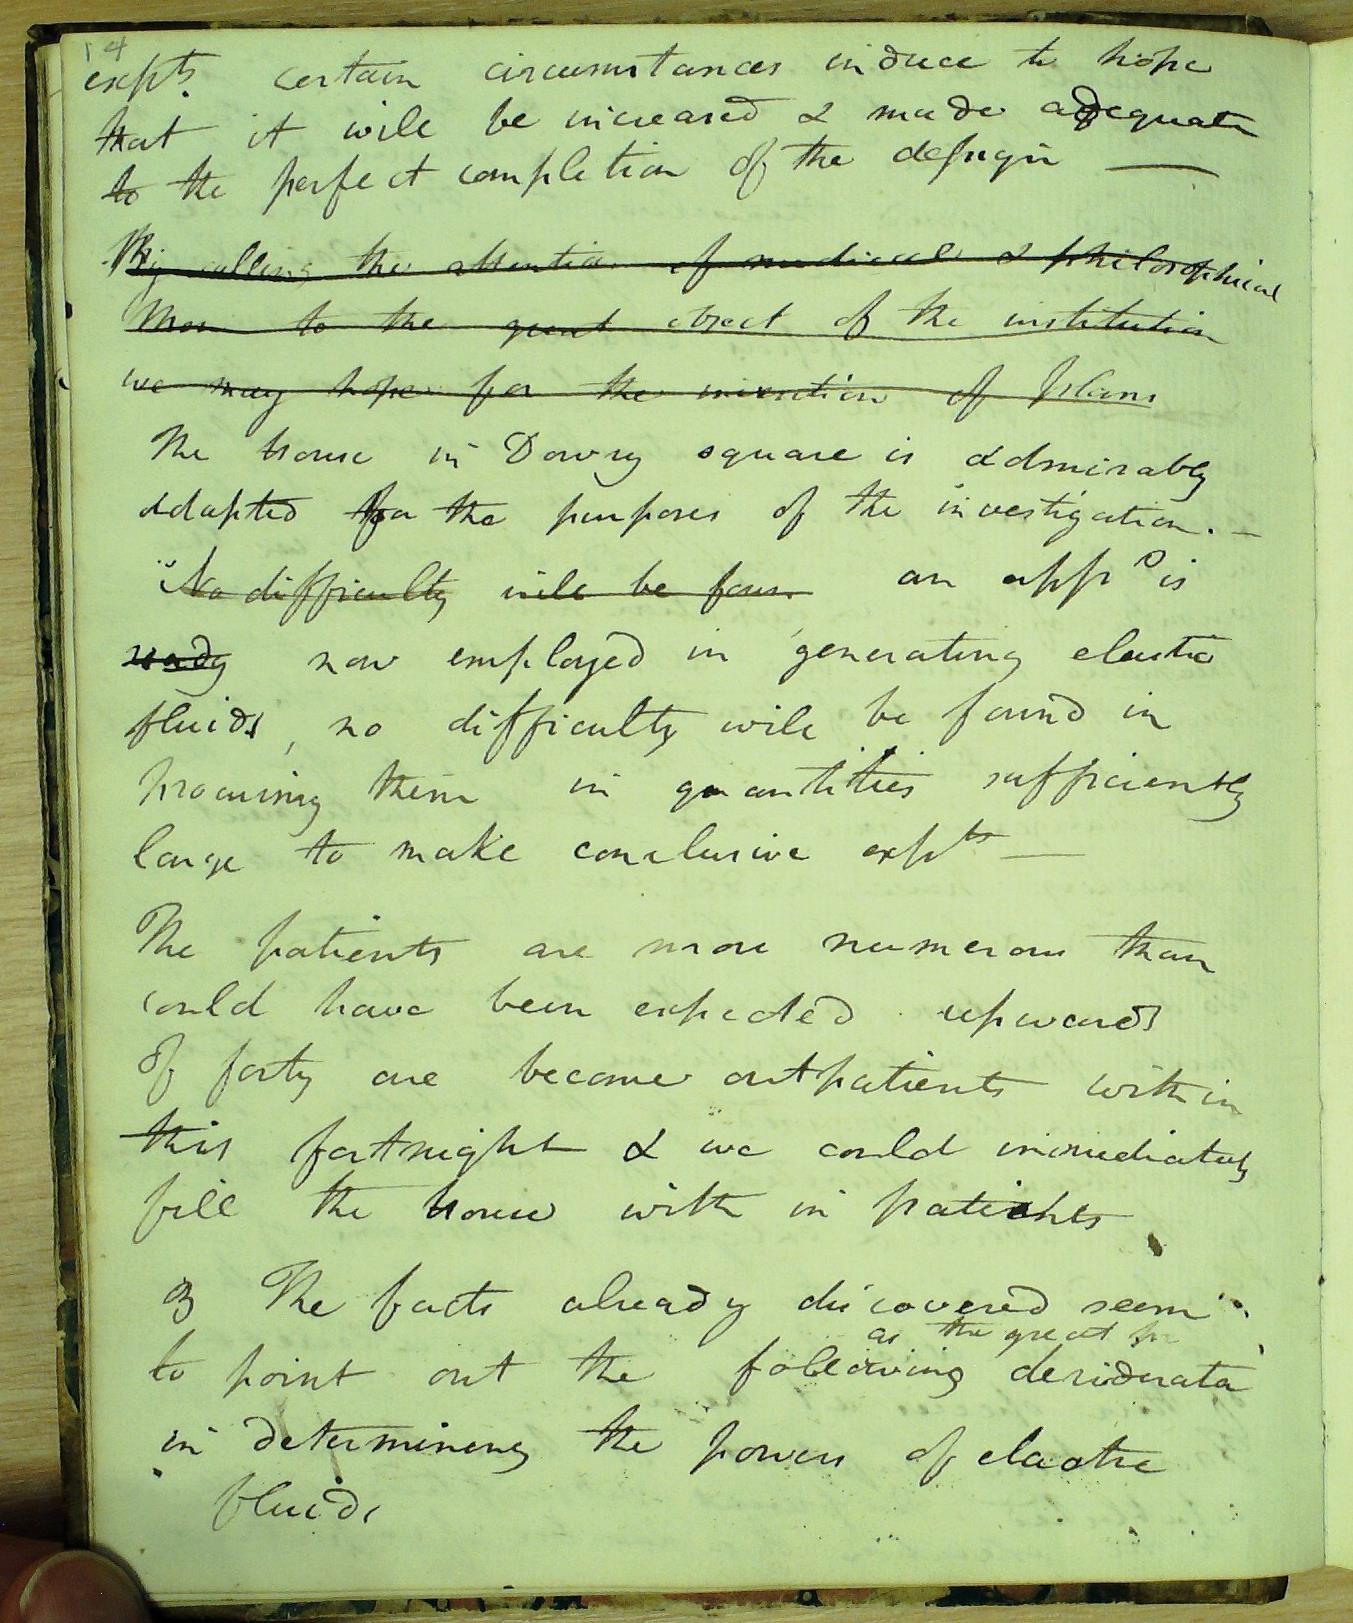 14
expts. certain circumstances induce to hope
that it will be increased & made adequate
to the perfect completion of the design —
By calling the attention of medical & philosophical
men to the great object of the institution
we may hope for the invention of plans
The house in Dowry square is admirably
adapted for the purposes of the investigation. —
No difficulty will be foun an appo is
ready now employed in generating elastic
fluids, no difficulty will be found in
procuring them in quantities sufficiently
large to make conclusive expts —
The patients are more numerous than
could have been expected upwards
of forty are become outpatients within
this fortnight & we could immediately
fill the house with in patients
3 The facts already discovered seem
as the great
to point out the following desiderata
in determining the powers of elastic
fluids